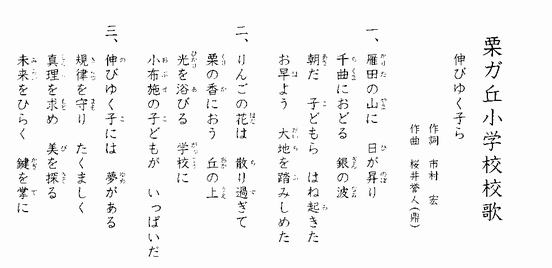 栗ガ丘小学校校歌
伸びゆく子ら
作詞 市村 宏
作曲 桜井誉人(鼎)
一、雁田の山に 日が昇り
千曲におどる 銀の波
朝だ 子どもら はね起きた
お早よう 大地を踏みしめた
二、りんごの花は 散り過ぎて
栗の香におう 丘の上
光を浴びる 学校に
小布施の子どもが いっぱいだ
三、伸びゆく子には 夢がある
規律を守り たくましく
真理を求め 美を探る
未来をひらく 鍵を掌に